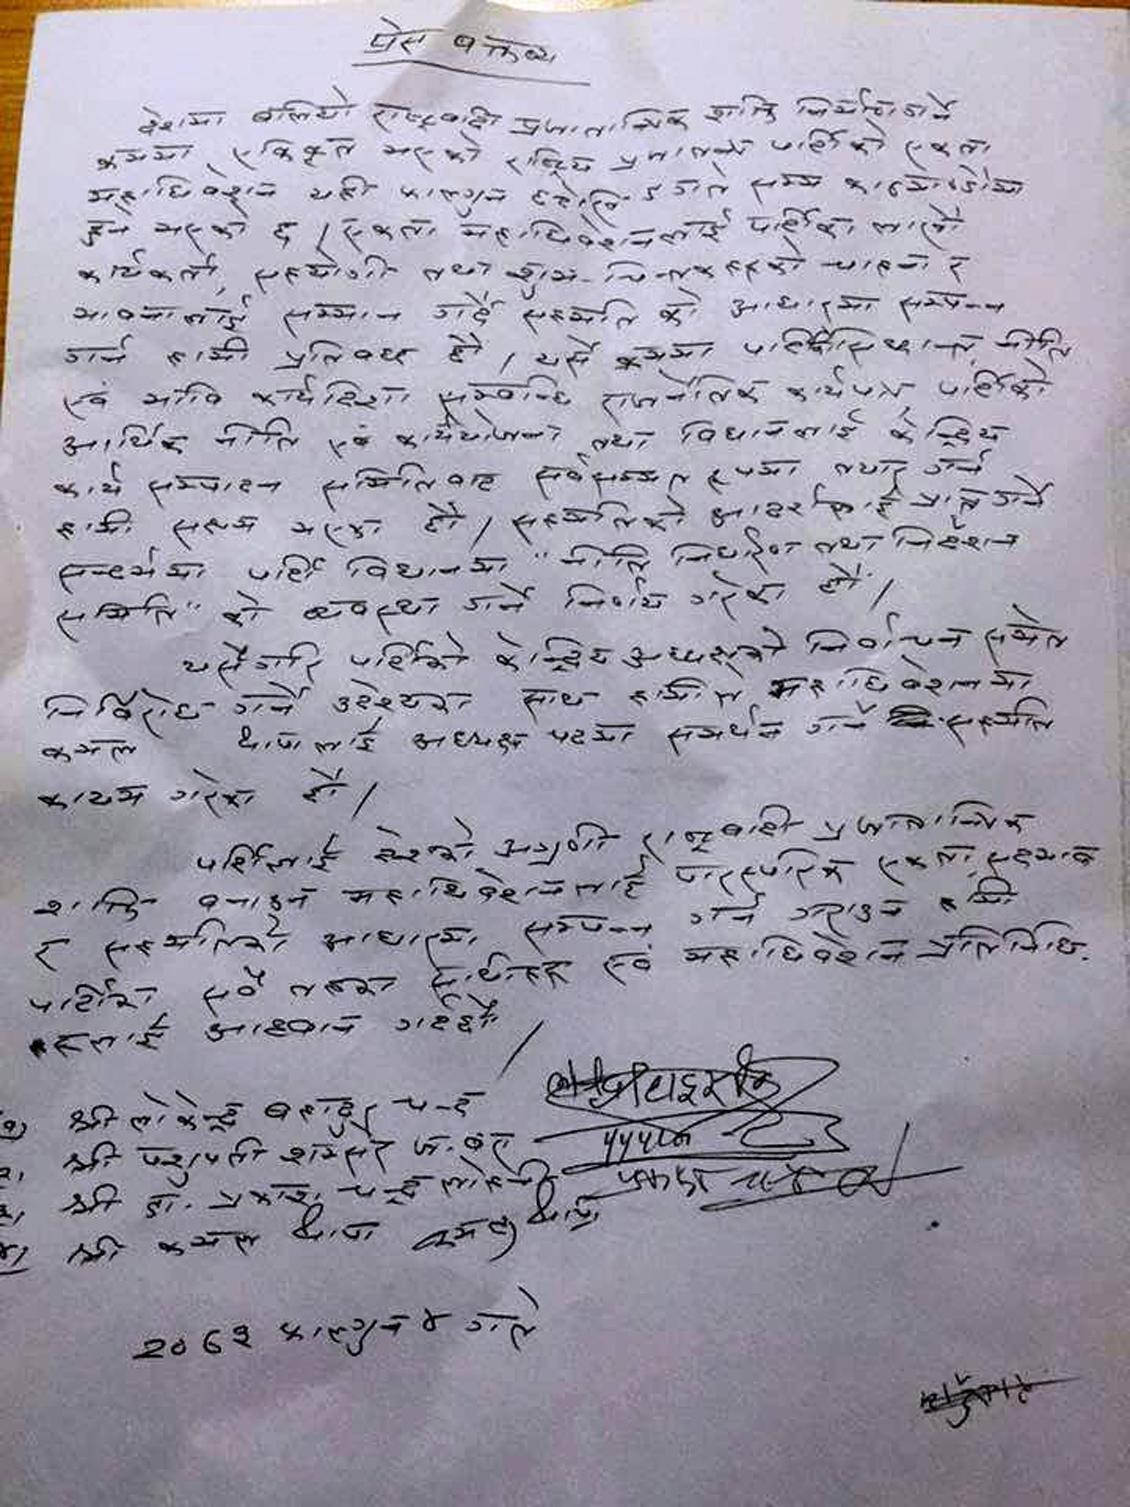 प्रेस वक्तव्य
देशमा बलियो राष्ट्रवादी प्रजातान्त्रिक शक्ति निर्माण गर्ने
क्रममा एकिकृत भएको राष्ट्रिय प्रजातन्त्र पार्टीको एकता
महाधिवेशन यही फाल्गुन गते सम्म काठमाडौंमा
हुन भएको छ । एकता महाधिवेशनलाई पार्टीका लाखौं
कार्यकर्ता, सहयोगी तथा शुभ-चिन्तकहरुको चाहना र
भावनालाई सम्मान गर्दै सहमति को आधारमा सम्पन्न
गर्न हामी प्रतिवद्ध छौं । यसै क्रममा पार्टी सिध्दान्त, नीति
एवं भावि कार्यदिशा सम्वन्धि राजनैतिक कार्यपत्र, पार्टीको
आर्थिक नीति एवं कार्ययोजना तथा विधानलाई केन्द्रिय
कार्य सम्पादन समितिवाट सर्वसम्मत रुपमा तयार गर्न
हामी सक्षम भएका छौं । सहमतिको आदर्शलाई प्राप्त गर्ने
सन्दर्भमा पार्टी विधानमा "नीति निर्धारण तथा निर्देशन
समिति" को व्यवस्था गर्ने निर्णय गरेका छौं ।
यसैगरि पार्टीको केन्द्रिय अध्यक्षको निर्वाचन समेत
निर्विरोध गर्ने उद्देश्यका साथ हामीले महाधिवेशनमा
कमल थापालाई अध्यक्ष पदमा समर्थन गर्ने सहमति
कायम गरेका छौं ।
पार्टीलाई देशको अग्रणी राष्ट्रवादी प्रजातान्त्रिक
शक्ति वनाउन महाधिवेशनलाई पारस्परिक एकता, सद्भाव
र सहमतिको आधारमा सम्पन्न गर्न गराउन हामी
पार्टीका सवै तहका साथीहरु एवं महाधिवेशन प्रतिनिधि
हरुलाई आह्वान गर्दछौं ।
१) श्री लोकेन्द्र बहादुर चन्द
२. श्री पशुपती शमसेर ज.ब.रा
३. श्री डा. प्रकाश चन्द्र लोहनी
४. श्री कमल थापा कमल थापा
२०७३ फाल्गुन ४ गते